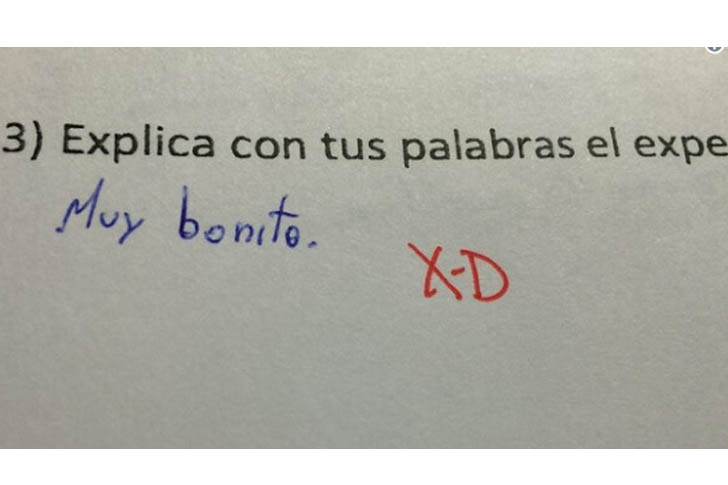 3) Explica con tus palabras el expe
Muy bonito.
X-D